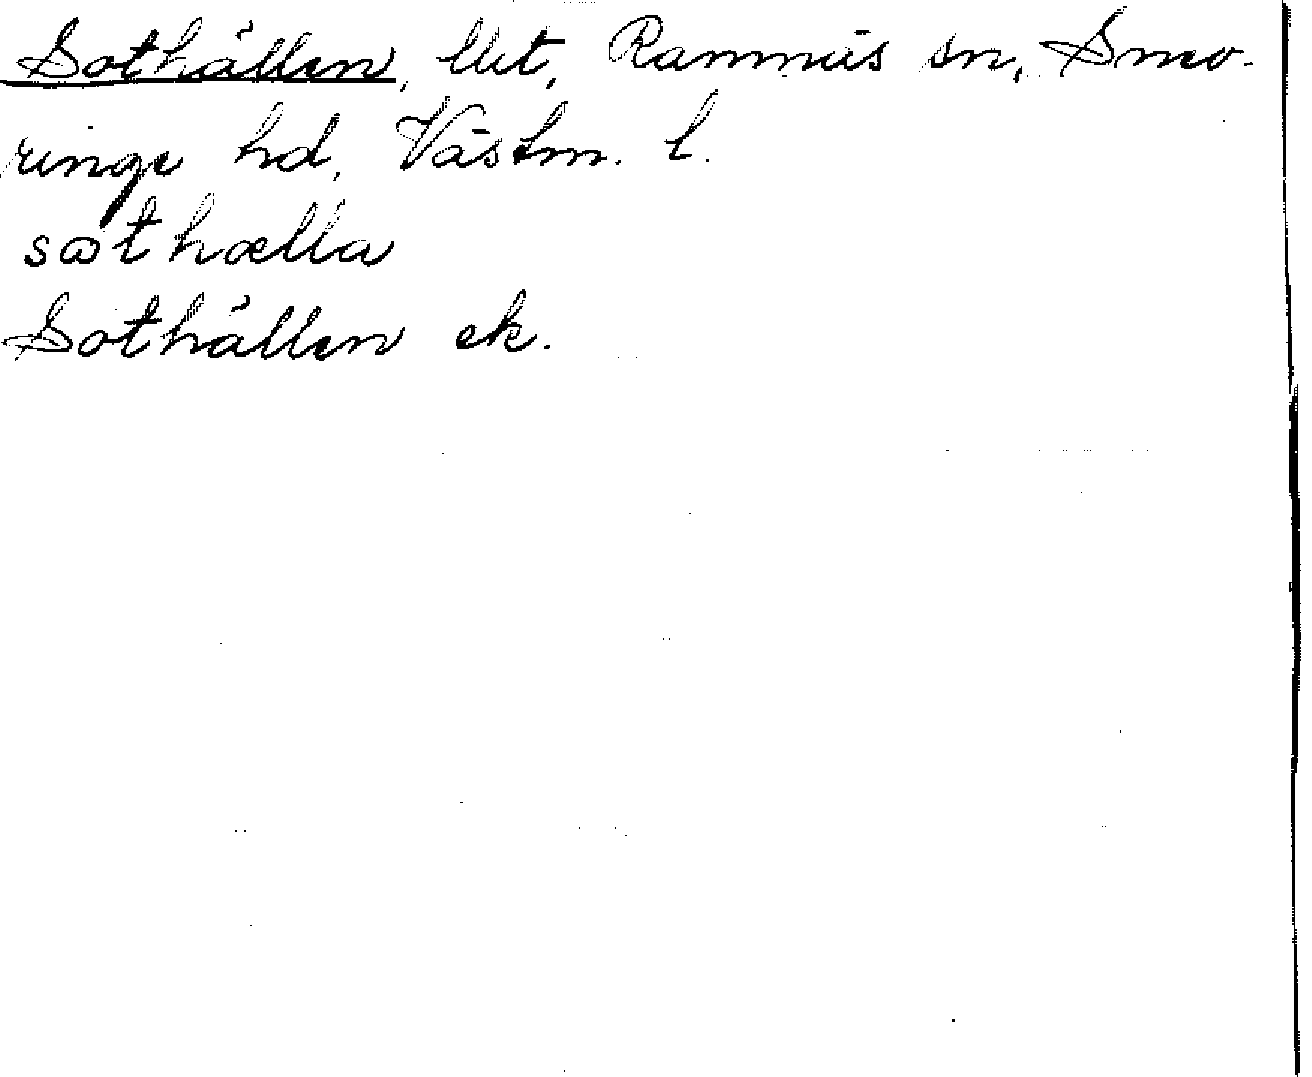 Sothällen, lht, Ramnäs sn, Snev-
ringe hd, Västm. l.
sothælla
Sothällen ek.